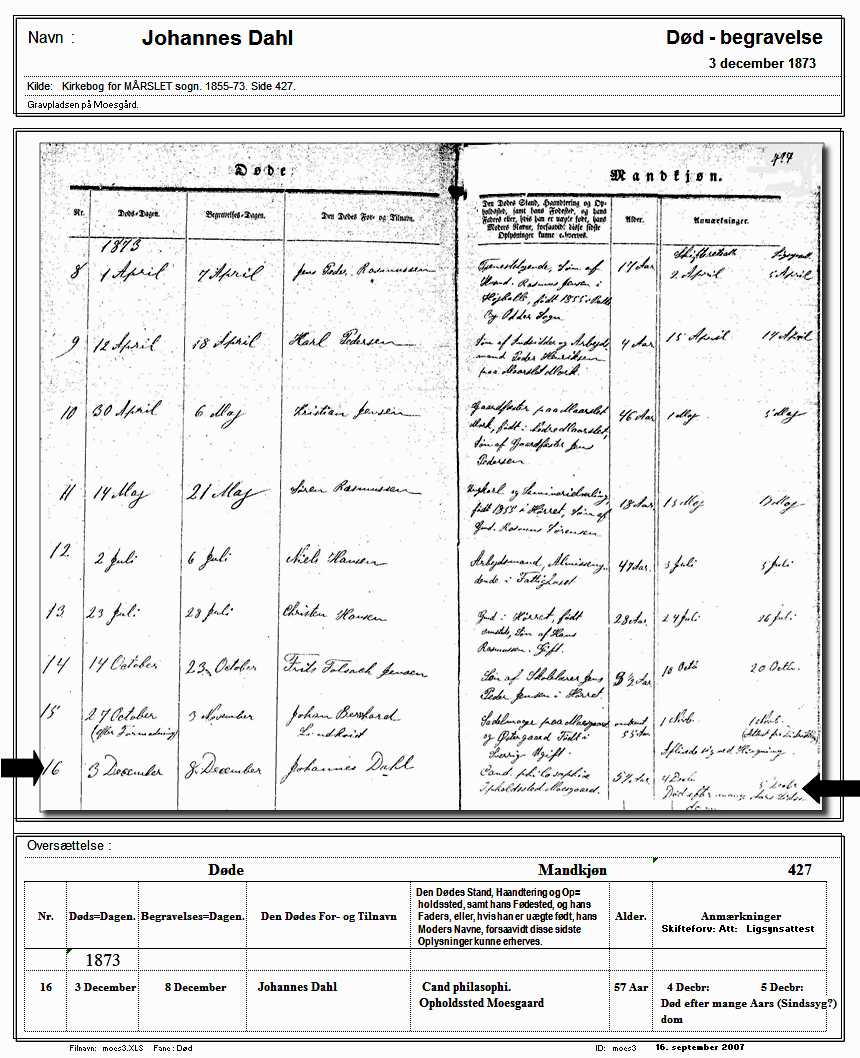 Navn : Johannes Dahl Død - begravelse
3 december 1873
Kilde: Kirkebog for MÅRSLET sogn. 1855-73. Side 427.
Gravpladsen på Moesgård.
427
Døde. Mandkjøn.
Nr. Døds-Dagen. Begravelses-Dagen. Den Dødes For- og Tilnavn. Den Dødes Stand, Haandtering og Op-
holdssted, samt hans Fødested, og hans
Faders, eller, hvis han er uægte født, hans
Moders Navne, forsaavidt disse sidste
Oplysninger kunne erhverves. Alder. Anmærkninger.
1873 Skifteretsatt.
8 1 April 7 April Jens Peder Rasmussen Tjenestesøgende, Søn af 17 Aar 2 April 5 April
Rasmus Jensen i
født 1855
Odder Sogn
9 12 April 18 April Karl Pedersen Søn af Indsidder og Arbejds 4 Aar 15 April 17 April
mand Peder Henriksen
paa Maarslet Mark.
10 30 April 6 Maj Kristian Jensen Gaardfæster paa Maarslet 46 Aar 1 Maj 5 Maj
Mark, født i
Søn af Gaardfæster Jens
Pedersen
11 14 Maj 21 Maj Søren Rasmussen Ungkarl og Seminarielærling, 18 Aar 15 Maj Maj
født 1855 i Hørret, Søn af
Gmd. Rasmus Sørensen
12 2 Juli 6 Juli Niels Hansen Arbejdsmand, Almisseny- 47 Aar. 3 Juli 5 Juli
dende i Fattighuset
13 23 Juli 28 Juli Christen Hansen Gmd i Hørret, født 28 Aar. 24 Juli 26 Juli
Søn af Hans
Rasmussen. Gift.
14 14 October 23 October Frits Jensen Søn af Skolelærer Jens 3 1/2 Aar 18 Octb 20 Octbr.
Peder Jensen i Hørret
15 27 October 3 November Johan Bernhard Sadelmager paa Moesgaard omtrent 1 Novb. 1 Novb.
(efter Formodning) og Østergaard Født i 55 Aar
Sverig Ugift. Aflivede sig ved Hængning
16 3 December 8 December Johannes Dahl Cand. philosophia 57 Aar 4 Decbr 5 Decbr
Opholdssted Moesgaard. Død efter mange Aars
dom
Oversættelse :
Døde Mandkjøn 427
Nr. Døds=Dagen. Begravelses=Dagen. Den Dødes For- og Tilnavn Den Dødes Stand, Haandtering og Op=
holdssted, samt hans Fødested, og hans
Faders, eller, hvis han er uægte født, hans
Moders Navne, forsaavidt disse sidste
Oplysninger kunne erherves. Alder. Anmærkninger
Skifteforv: Att: Ligsynsattest
1873
16 3 December 8 December Johannes Dahl Cand philasophi. 57 Aar 4 Decbr: 5 Decbr:
Opholdssted Moesgaard Død efter mange Aars (Sindssyg?)
dom
Filnavn: moes3.XLS Fane : Død ID: moes3 16. september 2007